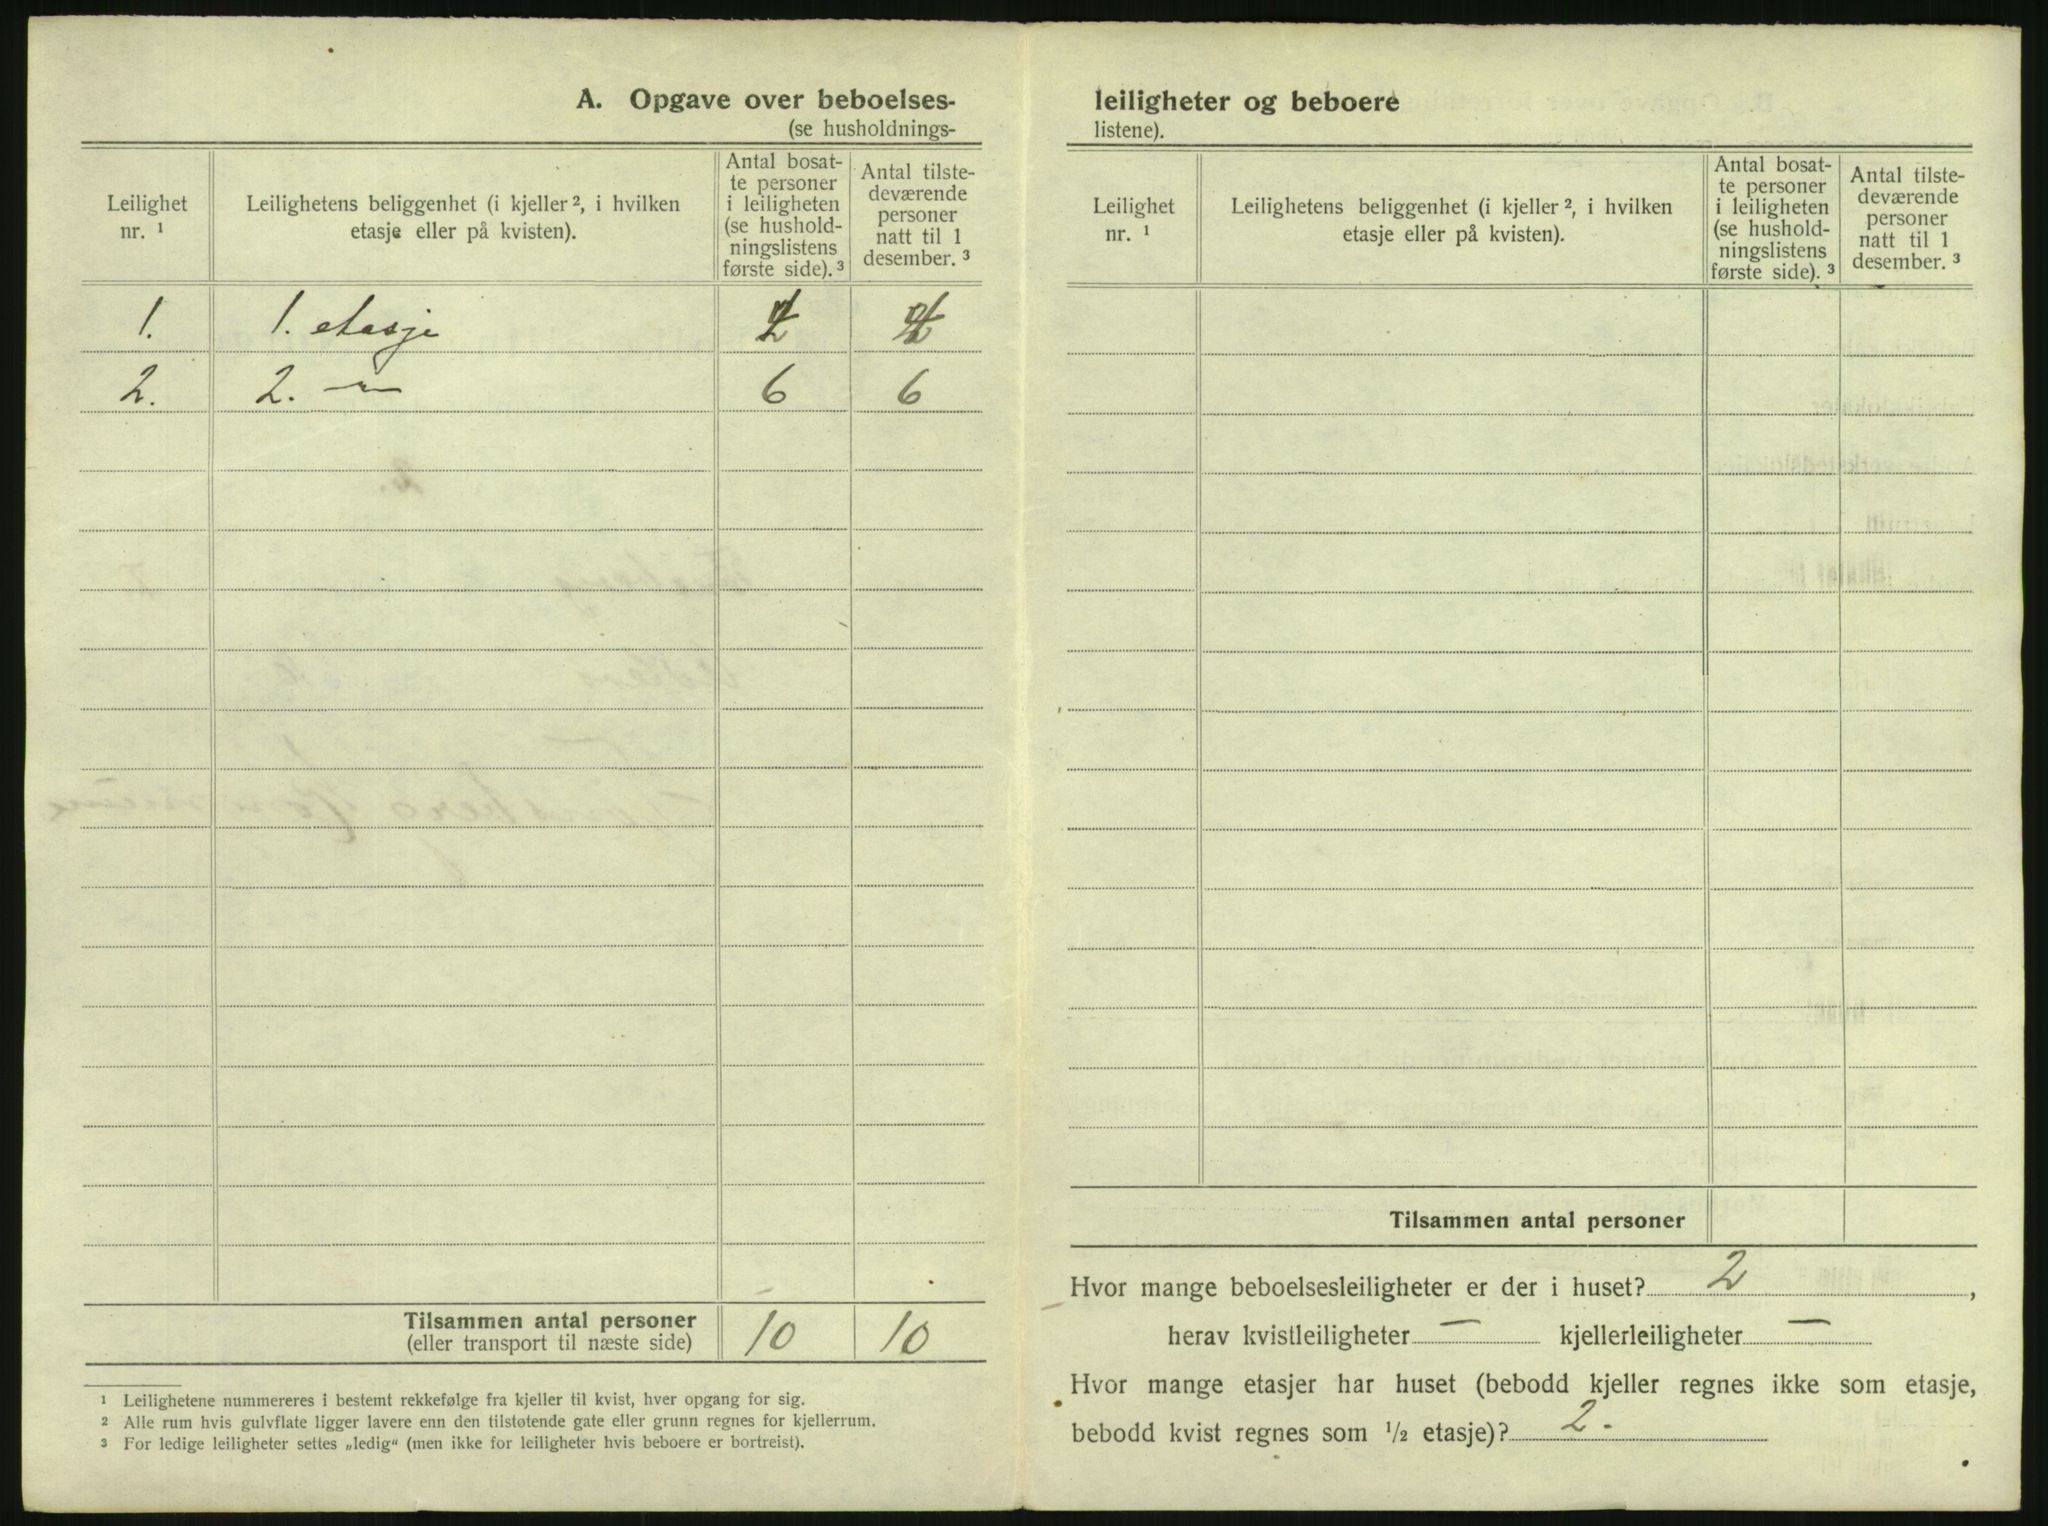 A. Opgave over beboelses-
(se husholdnings-
Leilighet nr. ¹
Leilighetens beliggenhet (i kjeller ², i hvilken etasje eller på kvisten).
Antal bosat-
te personer
i leiligheten
(se hushold-
ningslistens
første side). ³
Antal tilste-
deværende
personer
natt til 1
desember. ³
1. 1. etasje
2. 2. — 6 6
Tilsammen antal personer 10 10
(eller transport til næste side)
¹ Leilighetene nummereres i bestemt rekkefølge fra kjeller til kvist, hver opgang for sig.
² Alle rum hvis gulvflate ligger lavere enn den tilstøtende gate eller grunn regnes for kjellerrum.
³ For ledige leiligheter settes „ledig“ (men ikke for leiligheter hvis beboere er bortreist).
leiligheter og beboere
listene).
Leilighet nr. ¹
Leilighetens beliggenhet (i kjeller ², i hvilken etasje eller på kvisten).
Antal bosat-
te personer
i leiligheten
(se hushold-
ningslistens
første side). ³
Antal tilste-
deværende
personer
natt til 1
desember. ³
Tilsammen antal personer
Hvor mange beboelsesleiligheter er der i huset? 2,
herav kvistleiligheter — kjellerleiligheter —
Hvor mange etasjer har huset (bebodd kjeller regnes ikke som etasje,
bebodd kvist regnes som ½ etasje)? 2.